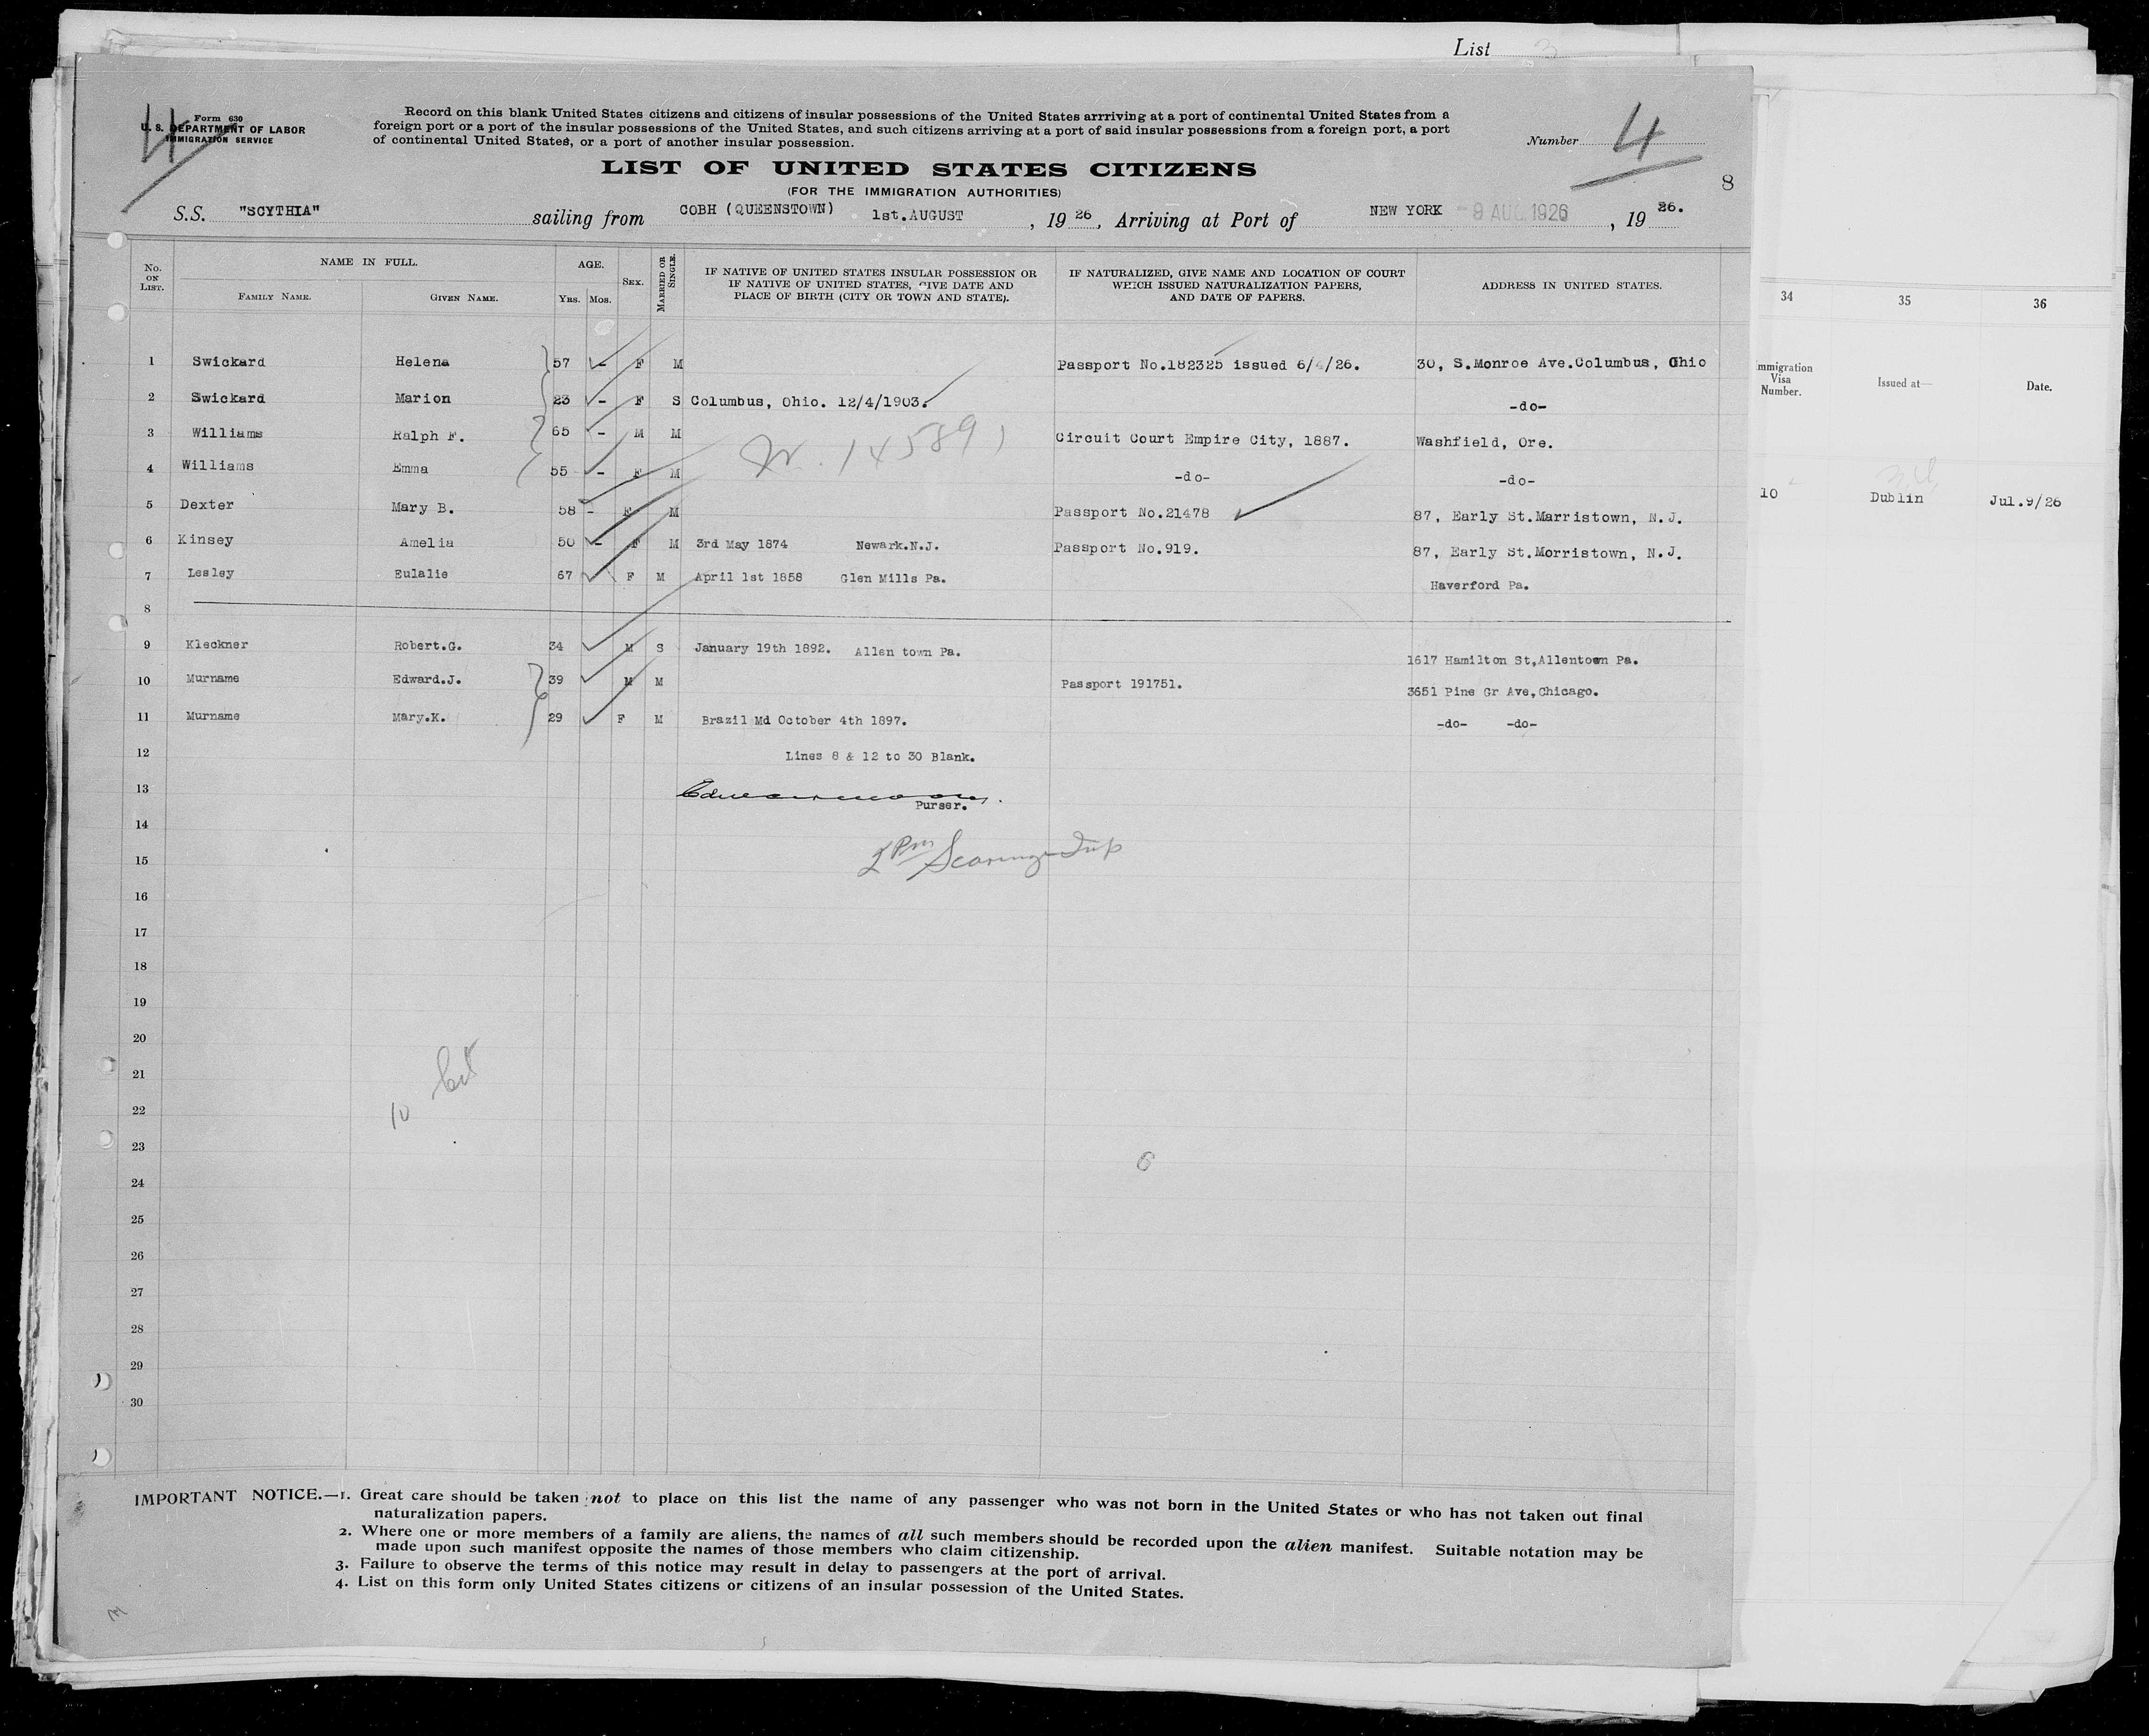 List 3
Form 630
U. S. DEPARTMENT OF LABOR
IMMIGRATION SERVICE
4
Record on this blank United States citizens and citizens of insular possessions of the United States arrriving at a port of continental United States from a
foreign port or a port of the insular possessions of the United States, and such citizens arriving at a port of said insular possessions from a foreign port, a port
of continental United States, or a port of another insular possession.
Number 4
LIST OF UNITED STATES CITIZENS
(FOR THE IMMIGRATION AUTHORITIES)
8
S.S. "SCYTHIA" sailing from COBH (QUEENSTOWN) 1st.AUGUST, 19 26, Arriving at Port of NEW YORK - 9 AUG. 1926, 19 26.
No. ON LIST. NAME IN FULL. FAMILY NAME. GIVEN NAME. AGE. YRS. MOS. SEX. MARRIED OR SINGLE. IF NATIVE OF UNITED STATES INSULAR POSSESSION OR IF NATIVE OF UNITED STATES, GIVE DATE AND PLACE OF BIRTH (CITY OR TOWN AND STATE). IF NATURALIZED, GIVE NAME AND LOCATION OF COURT WHICH ISSUED NATURALIZATION PAPERS, AND DATE OF PAPERS. ADDRESS IN UNITED STATES.
1 Swickard Helena 57 - F M Passport No.182325 issued 6/4/26. 30, S.Monroe Ave.Columbus, Ohio
2 Swickard Marion 23 - F S Columbus, Ohio. 12/4/1903. -do-
3 Williams Ralph F. 65 - M M Circuit Court Empire City, 1887. Washfield, Ore.
4 Williams Emma 55 - F M -do- -do-
5 Dexter Mary B. 58 - F M Passport No.21478 87, Early St.Marristown, N.J.
6 Kinsey Amelia 50 - F M 3rd May 1874 Newark.N.J. Passport No.919. 87, Early St.Morristown, N.J.
7 Lesley Eulalie 67 F M April 1st 1858 Glen Mills Pa. Haverford Pa.
8
9 Kleckner Robert.G. 34 M S January 19th 1892. Allen town Pa. 1617 Hamilton St,Allentown Pa.
10 Murname Edward.J. 39 M M Passport 191751. 3651 Pine Gr Ave,Chicago.
11 Murname Mary.K. 29 F M Brazil Md October 4th 1897. -do- -do-
12 Lines 8 & 12 to 30 Blank.
13
Purser.
14
15
16
17
18
19
20
21
22 10
23
6
24
25
26
27
28
29
30
IMPORTANT NOTICE.—1. Great care should be taken not to place on this list the name of any passenger who was not born in the United States or who has not taken out final
naturalization papers.
2. Where one or more members of a family are aliens, the names of all such members should be recorded upon the alien manifest. Suitable notation may be
made upon such manifest opposite the names of those members who claim citizenship.
3. Failure to observe the terms of this notice may result in delay to passengers at the port of arrival.
4. List on this form only United States citizens or citizens of an insular possession of the United States.
34 35 36
mmigration Visa Number. Issued at— Date.
10 Dublin Jul.9/26